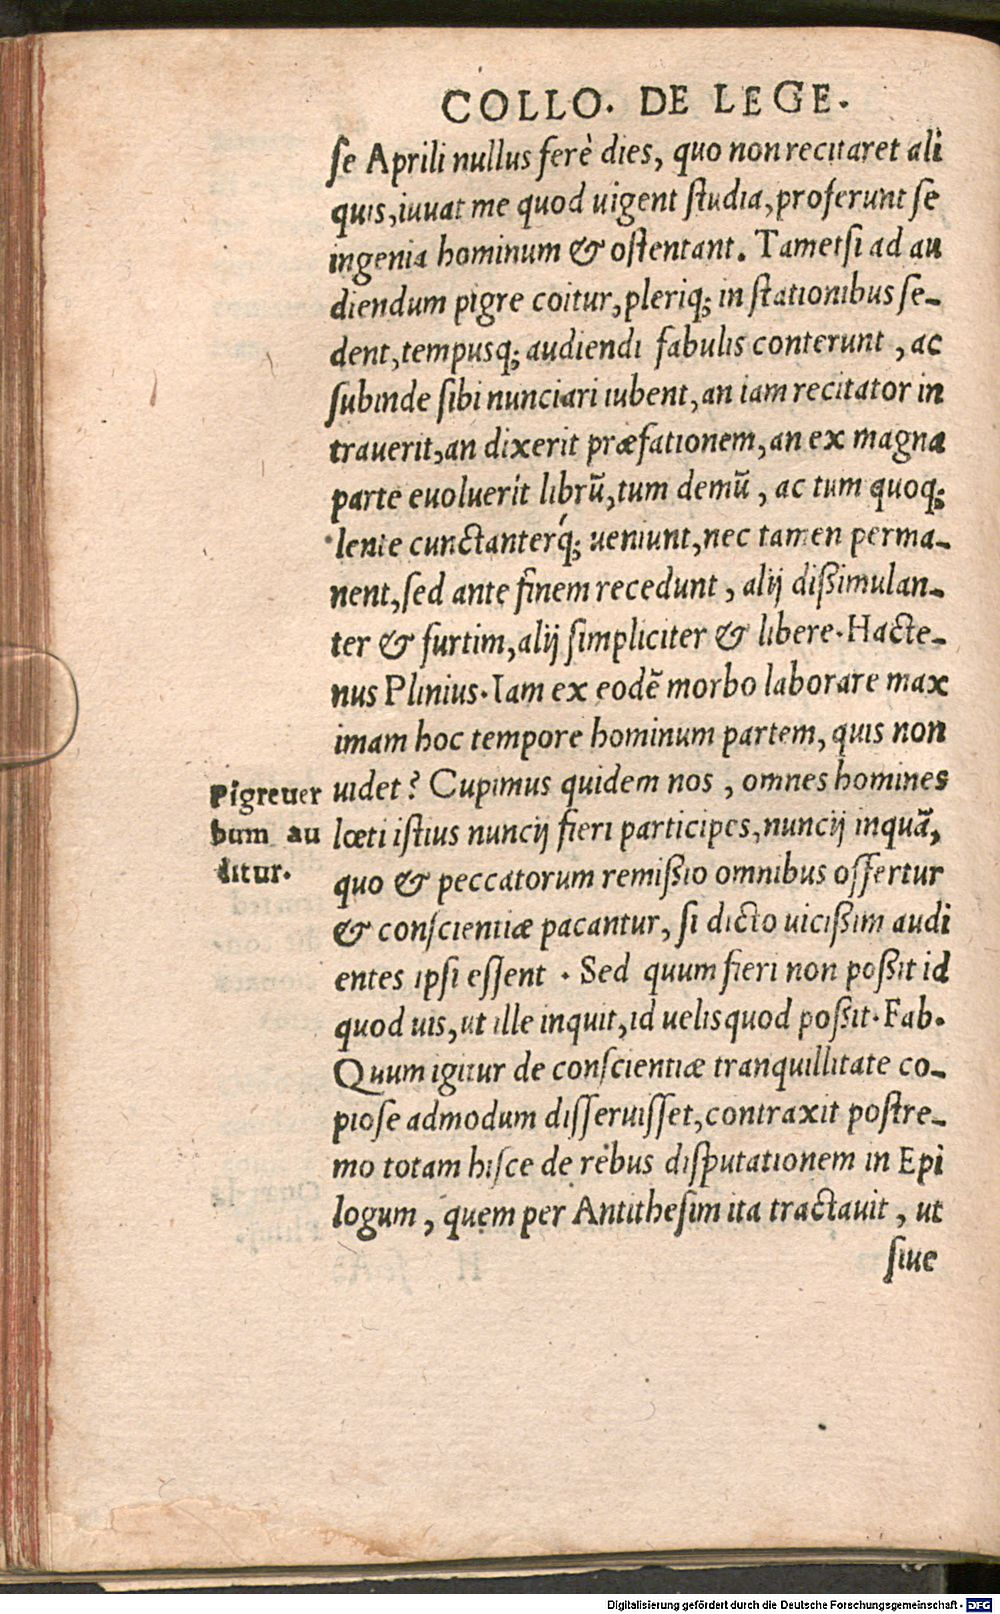 COLLO. DE LEGE.
se Aprili nullus ferè dies, quo non recitaret ali
quis, iuuat me quod uigent studia, proferunt se
ingenia hominum & ostentant. Tametsi ad au
diendum pigre coitur, pleriq; in stationibus se-
dent, tempusq; audiendi fabulis conterunt, ac
subinde sibi nunciari iubent, an iam recitator in
trauerit, an dixerit præfationem, an ex magna
parte euoluerit librũ, tum demũ, ac tum quoq;
lente cunctanterq́; ueniunt, nec tamen perma-
nent, sed ante finem recedunt, alij dißimulan-
ter & furtim, alij simpliciter & libere. Hacte-
nus Plinius. Iam ex eodẽ morbo laborare max
imam hoc tempore hominum partem, quis non
uidet? Cupimus quidem nos, omnes homines
lœti istius nuncij fieri participes, nuncij inquã,
quo & peccatorum remißio omnibus offertur
& conscientiæ pacantur, si dicto uicißim audi
entes ipsi essent. Sed quum fieri non poßit id
quod uis, ut ille inquit, id uelis quod poßit. Fab.
Quum igitur de conscientiæ tranquillitate co-
piose admodum disseruisset, contraxit postre-
mo totam hisce de rebus disputationem in Epi
logum, quem per Antithesim ita tractauit, ut
siue
Pigre uer
bum au
ditur.
Digitalisierung gefördert durch die Deutsche Forschungsgemeinschaft - DFG